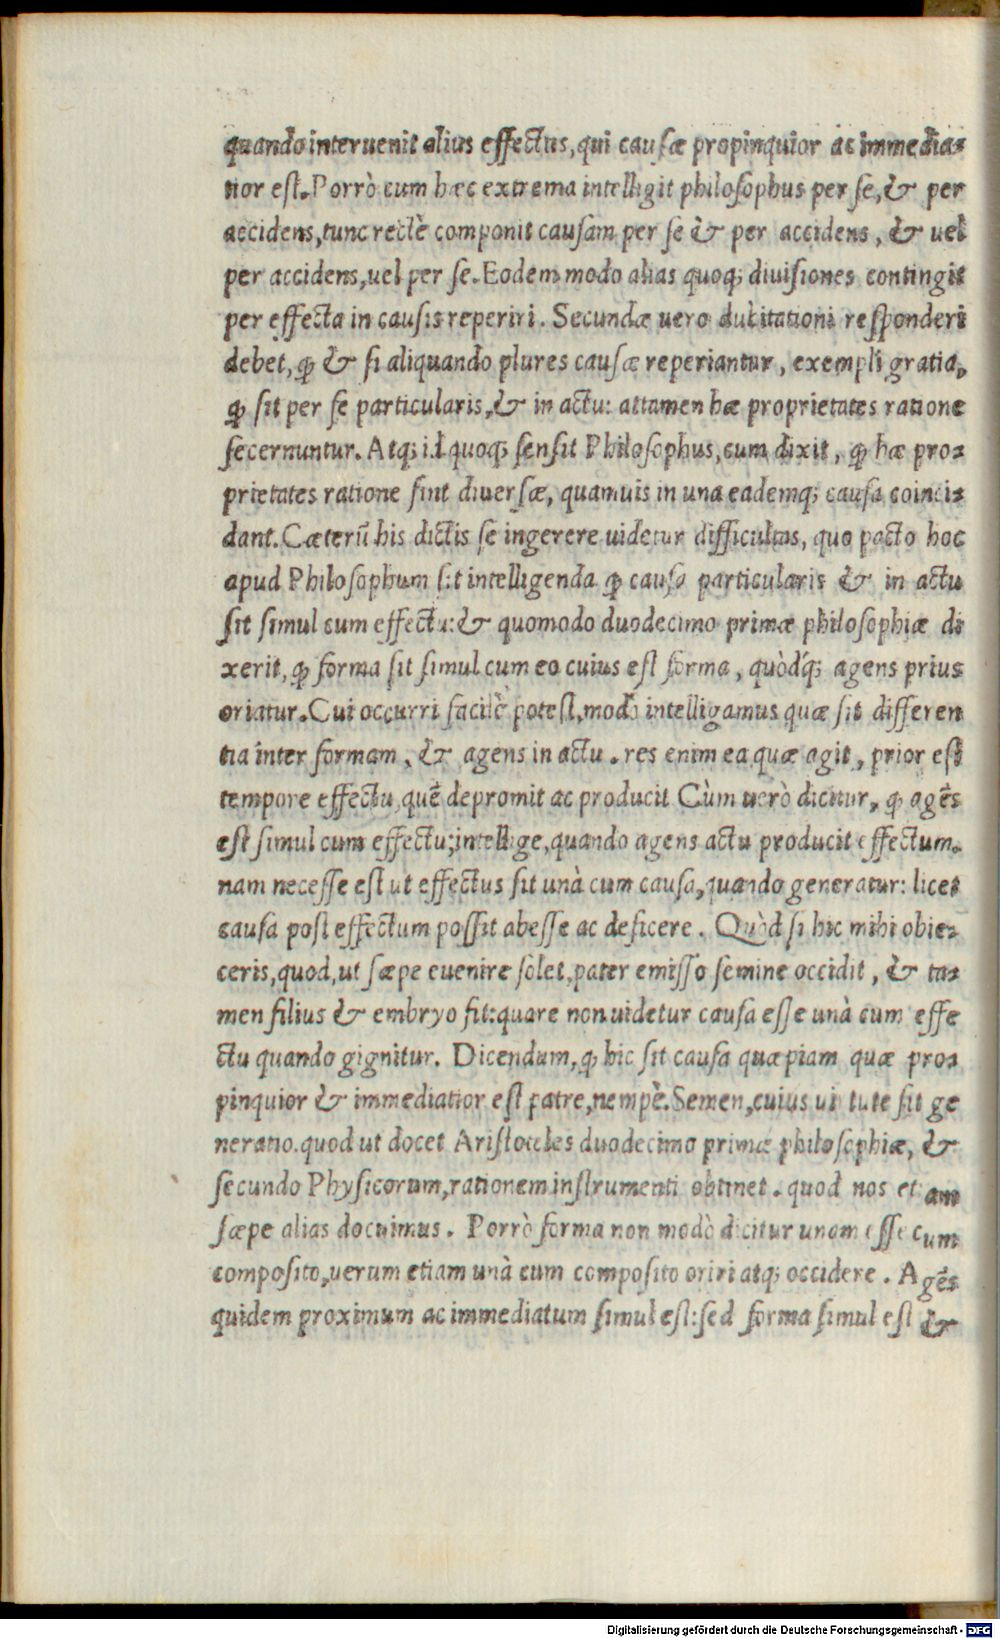 quando interuenit alius effectus, qui causæ propinquior ac immedia-
tior est. Porrò cum hæc extrema intelligit philosophus per se, & per
accidens, tunc rectè componit causam per se & per accidens, & uel
per accidens, uel per se. Eodem modo alias quoq; diuisiones contingit
per effecta in causis reperiri. Secundæ uero dubitationi responderi
debet, ꝙ & si aliquando plures causæ reperiantur, exempli gratia,
ꝙ sit per se particularis, & in actu: attamen hæ proprietates ratione
secernuntur. Atq; id quoq; sensit Philosophus, cum dixit, ꝙ hæ pro-
prietates ratione sint diuersæ, quamuis in una eademq; causa coinci-
dant. Cæterũ his dictis se ingerere uidetur difficultas, quo pacto hoc
apud Philosophum sit intelligenda ꝙ causa particularis & in actu
sit simul cum effectu: & quomodo duodecimo primæ philosophiæ di
xerit, ꝙ forma sit simul cum eo cuius est forma, quòdq́; agens prius
oriatur. Cui occurri facilè potest, modò intelligamus quæ sit differen
tia inter formam, & agens in actu. res enim ea quæ agit, prior est
tempore effectu, quẽ depromit ac producit. Cùm uerò dicitur, ꝙ agẽs
est simul cum effectu; intellige, quando agens actu producit effectum.
nam necesse est ut effectus sit unà cum causa, quando generatur: licet
causa post effectum possit abesse ac deficere. Quòd si hic mihi obie-
ceris, quod, ut sæpe euenire solet, pater emisso semine occidit, & ta-
men filius & embryo fit: quare non uidetur causa esse unà cum effe
ctu quando gignitur. Dicendum, ꝙ hic sit causa quæpiam quæ pro-
pinquior & immediatior est patre, nempè. Semen, cuius uirtute fit ge
neratio. quod ut docet Aristoteles duodecimo primæ philosophiæ, &
secundo Physicorum, rationem instrumenti obtinet. quod nos etiam
sæpe alias docuimus. Porrò forma non modò dicitur unam esse cum
composito, uerum etiam unà cum composito oriri atq; occidere. Agẽs
quidem proximum ac immediatum simul est: sed forma simul est &
Digitalisierung gefördert durch die Deutsche Forschungsgemeinschaft - DFG